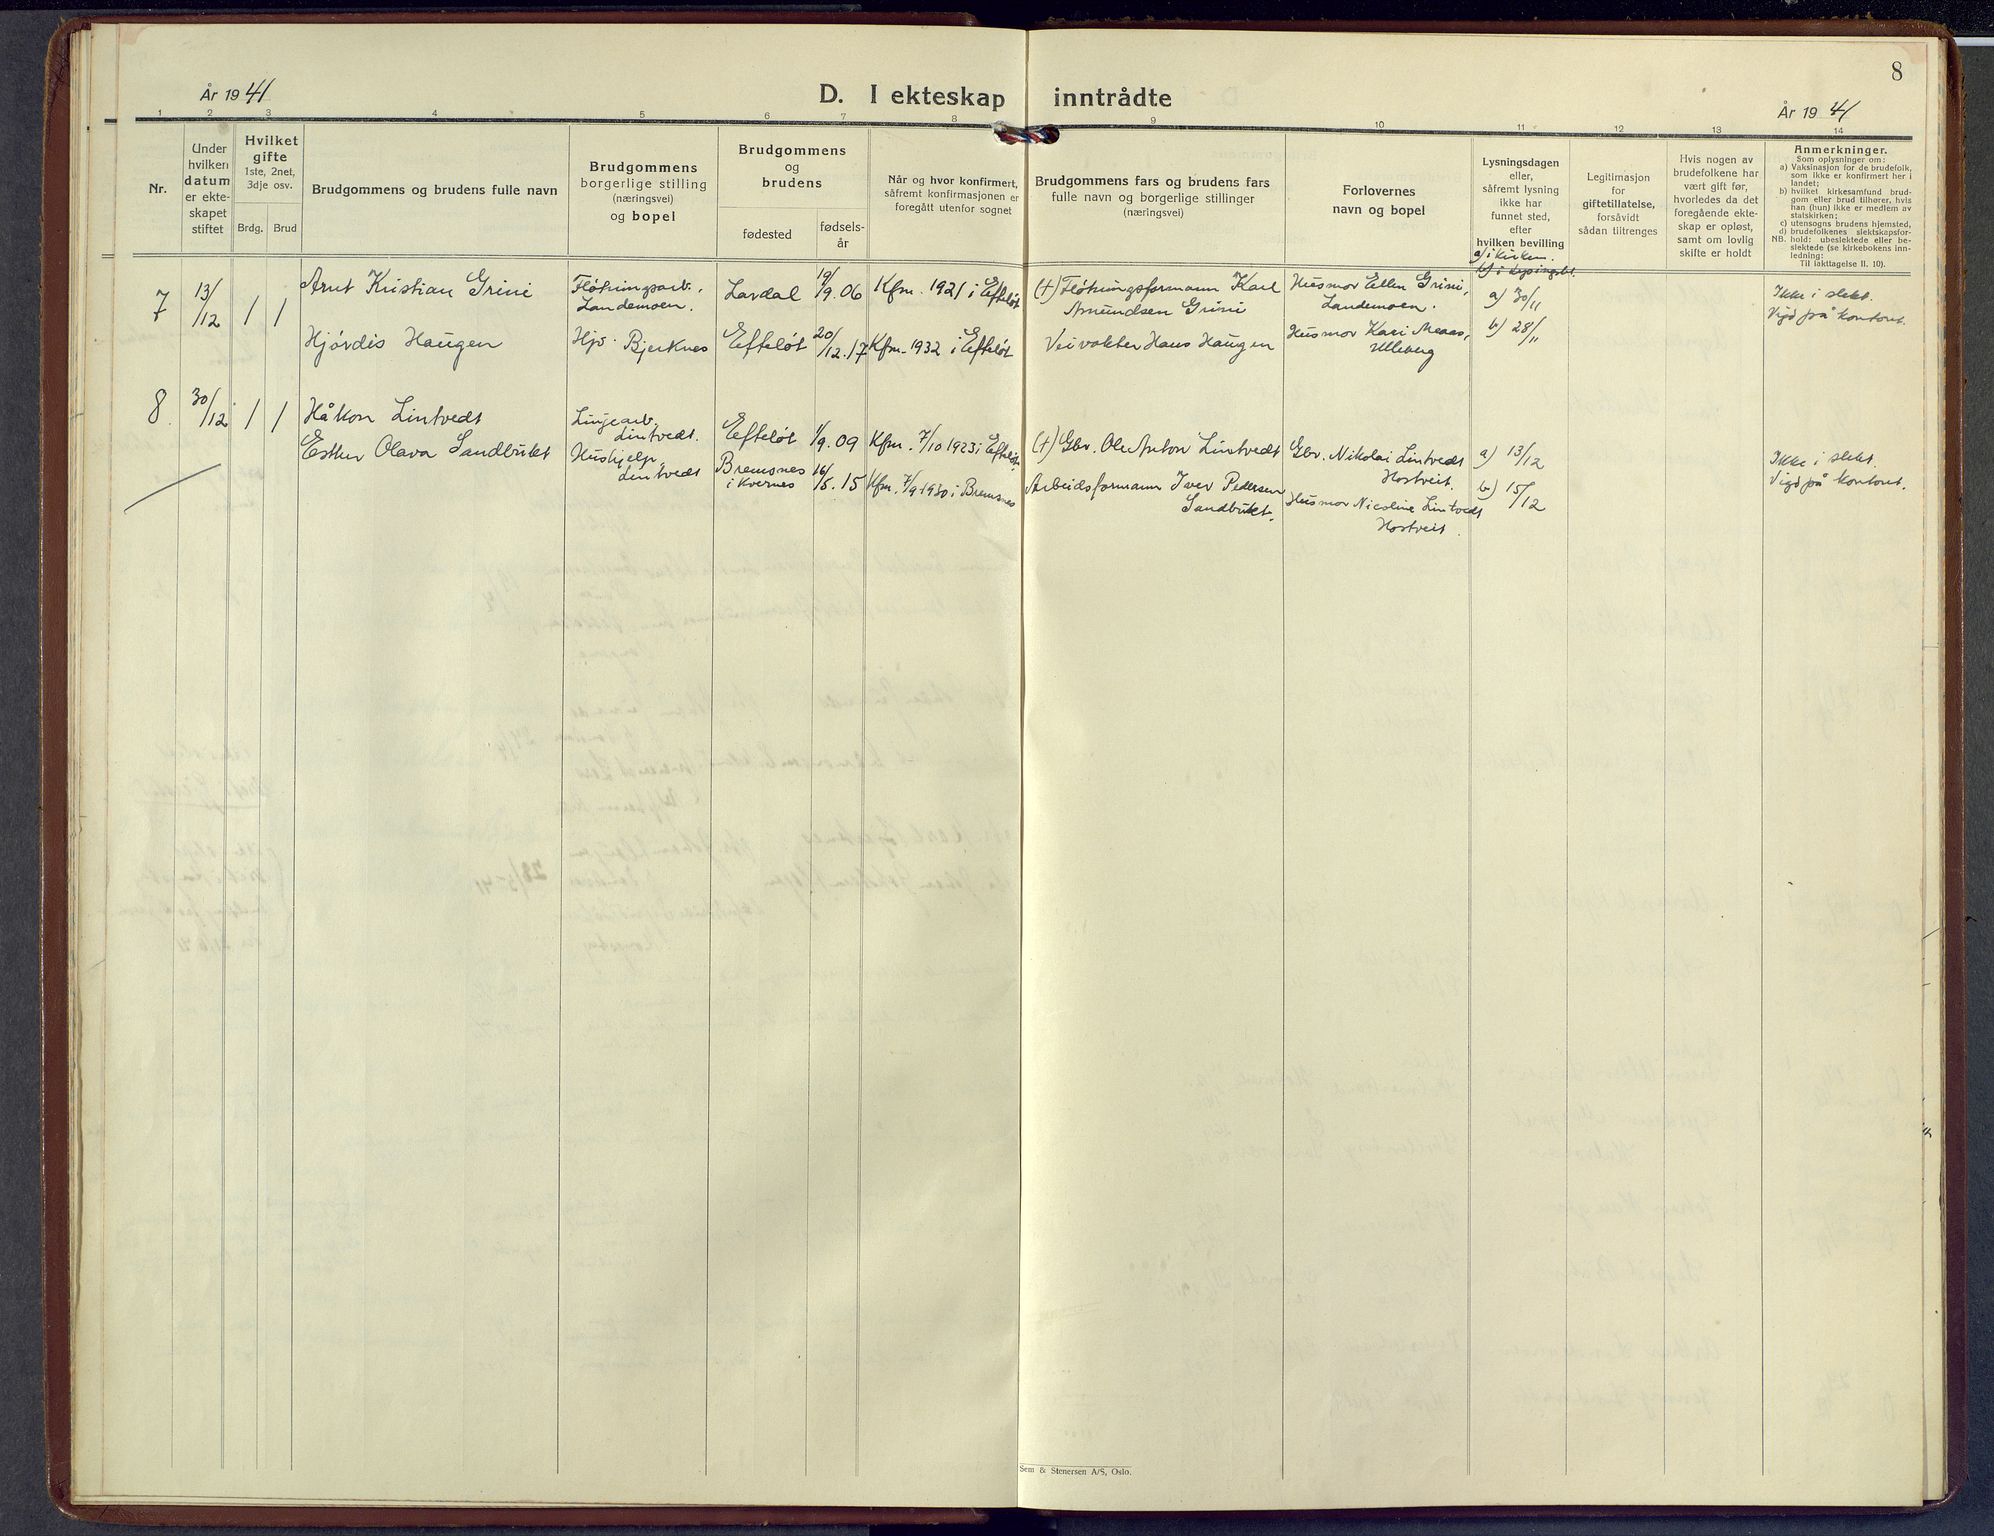 År 1941
D. I ekteskap inntrådte
8
År 1941
1 2 3 4 5 6 7 8 9 10 11 12 13 14
Nr.
Under hvilken datum er ekteskapet stiftet
Hvilket gifte
1ste, 2net, 3dje osv.
Brdg. Brud
Brudgommens og brudens fulle navn
Brudgommens borgerlige stilling (næringsvei) og bopel
Brudgommens og brudens
fødested
fødselsår
Når og hvor konfirmert,
såfremt konfirmasjonen er
foregått utenfor sognet
Brudgommens fars og brudens fars
fulle navn og borgerlige stillinger
(næringsvei)
Forlovernes
navn og bopel
Lysningsdagen
eller,
såfremt lysning
ikke har
funnet sted,
efter
hvilken bevilling
a) i kirken.
b) i lysingsbl.
Legitimasjon
for
giftetillatelse,
forsåvidt
sådan tiltrenges
Hvis nogen av
brudefolkene har
vært gift før,
hvorledes da det
foregående ekte-
skap er opløst,
samt om lovlig
skifte er holdt
Anmerkninger.
Som oplysninger om:
a) Vaksinasjon for de brudefolk,
som ikke er konfirmert her i
landet;
b) hvilket kirkesamfund brud-
gom eller brud tilhører, hvis
han (hun) ikke er medlem av
statskirken;
c) utensogns brudens hjemsted,
d) brudefolkenes slektskapsfor-
NB. hold: ubeslektede eller be-
slektede (se kirkebokens inn-
ledning:
Til iakttagelse II. 10).
7 13/12 1 1
Arnt Kristian Grini
Fløtningsarb.,
Landemoen.
Lardal 19/9. 06
Kfm. 1921 i Efteløt
(+) Fløtningsformann Karl
Amundsen Grini
Husmor Ellen Grini,
Landemoen.
a) 30/11
Ikke i slekt.
Vigd på kontoret.
Hjørdis Haugen
Hjv. Bjerknes
Efteløt 20/12. 17
Kfm. 1932 i Efteløt
Veivokter Hans Haugen
Husmor Kari Meaas,
Ulleberg
b) 28/11
8. 30/12 1 1
Håkon Lintvedt
Linjearb.
Lintvedt.
Efteløt 1/9. 09
Kfm. 7/10 1923 i Efteløt
(+) Gbr. Ole Anton Lintvedt
Gbr. Nikolai Lintvedt
Hostveit.
a) 13/12
Ikke i slekt.
Vigd på kontoret.
Esther Olava Sandbukt
Hushjelp,
Lintvedt
Bremsnes
i Kvernes
16/5. 15
Kfm. 7/9-1930 i Bremsnes
Arbeidsformann Iver Pedersen
Sandbukt.
Husmor Nicoline Lintvedt
Hostveit.
b) 15/12
Sem & Stenersen A/S, Oslo.